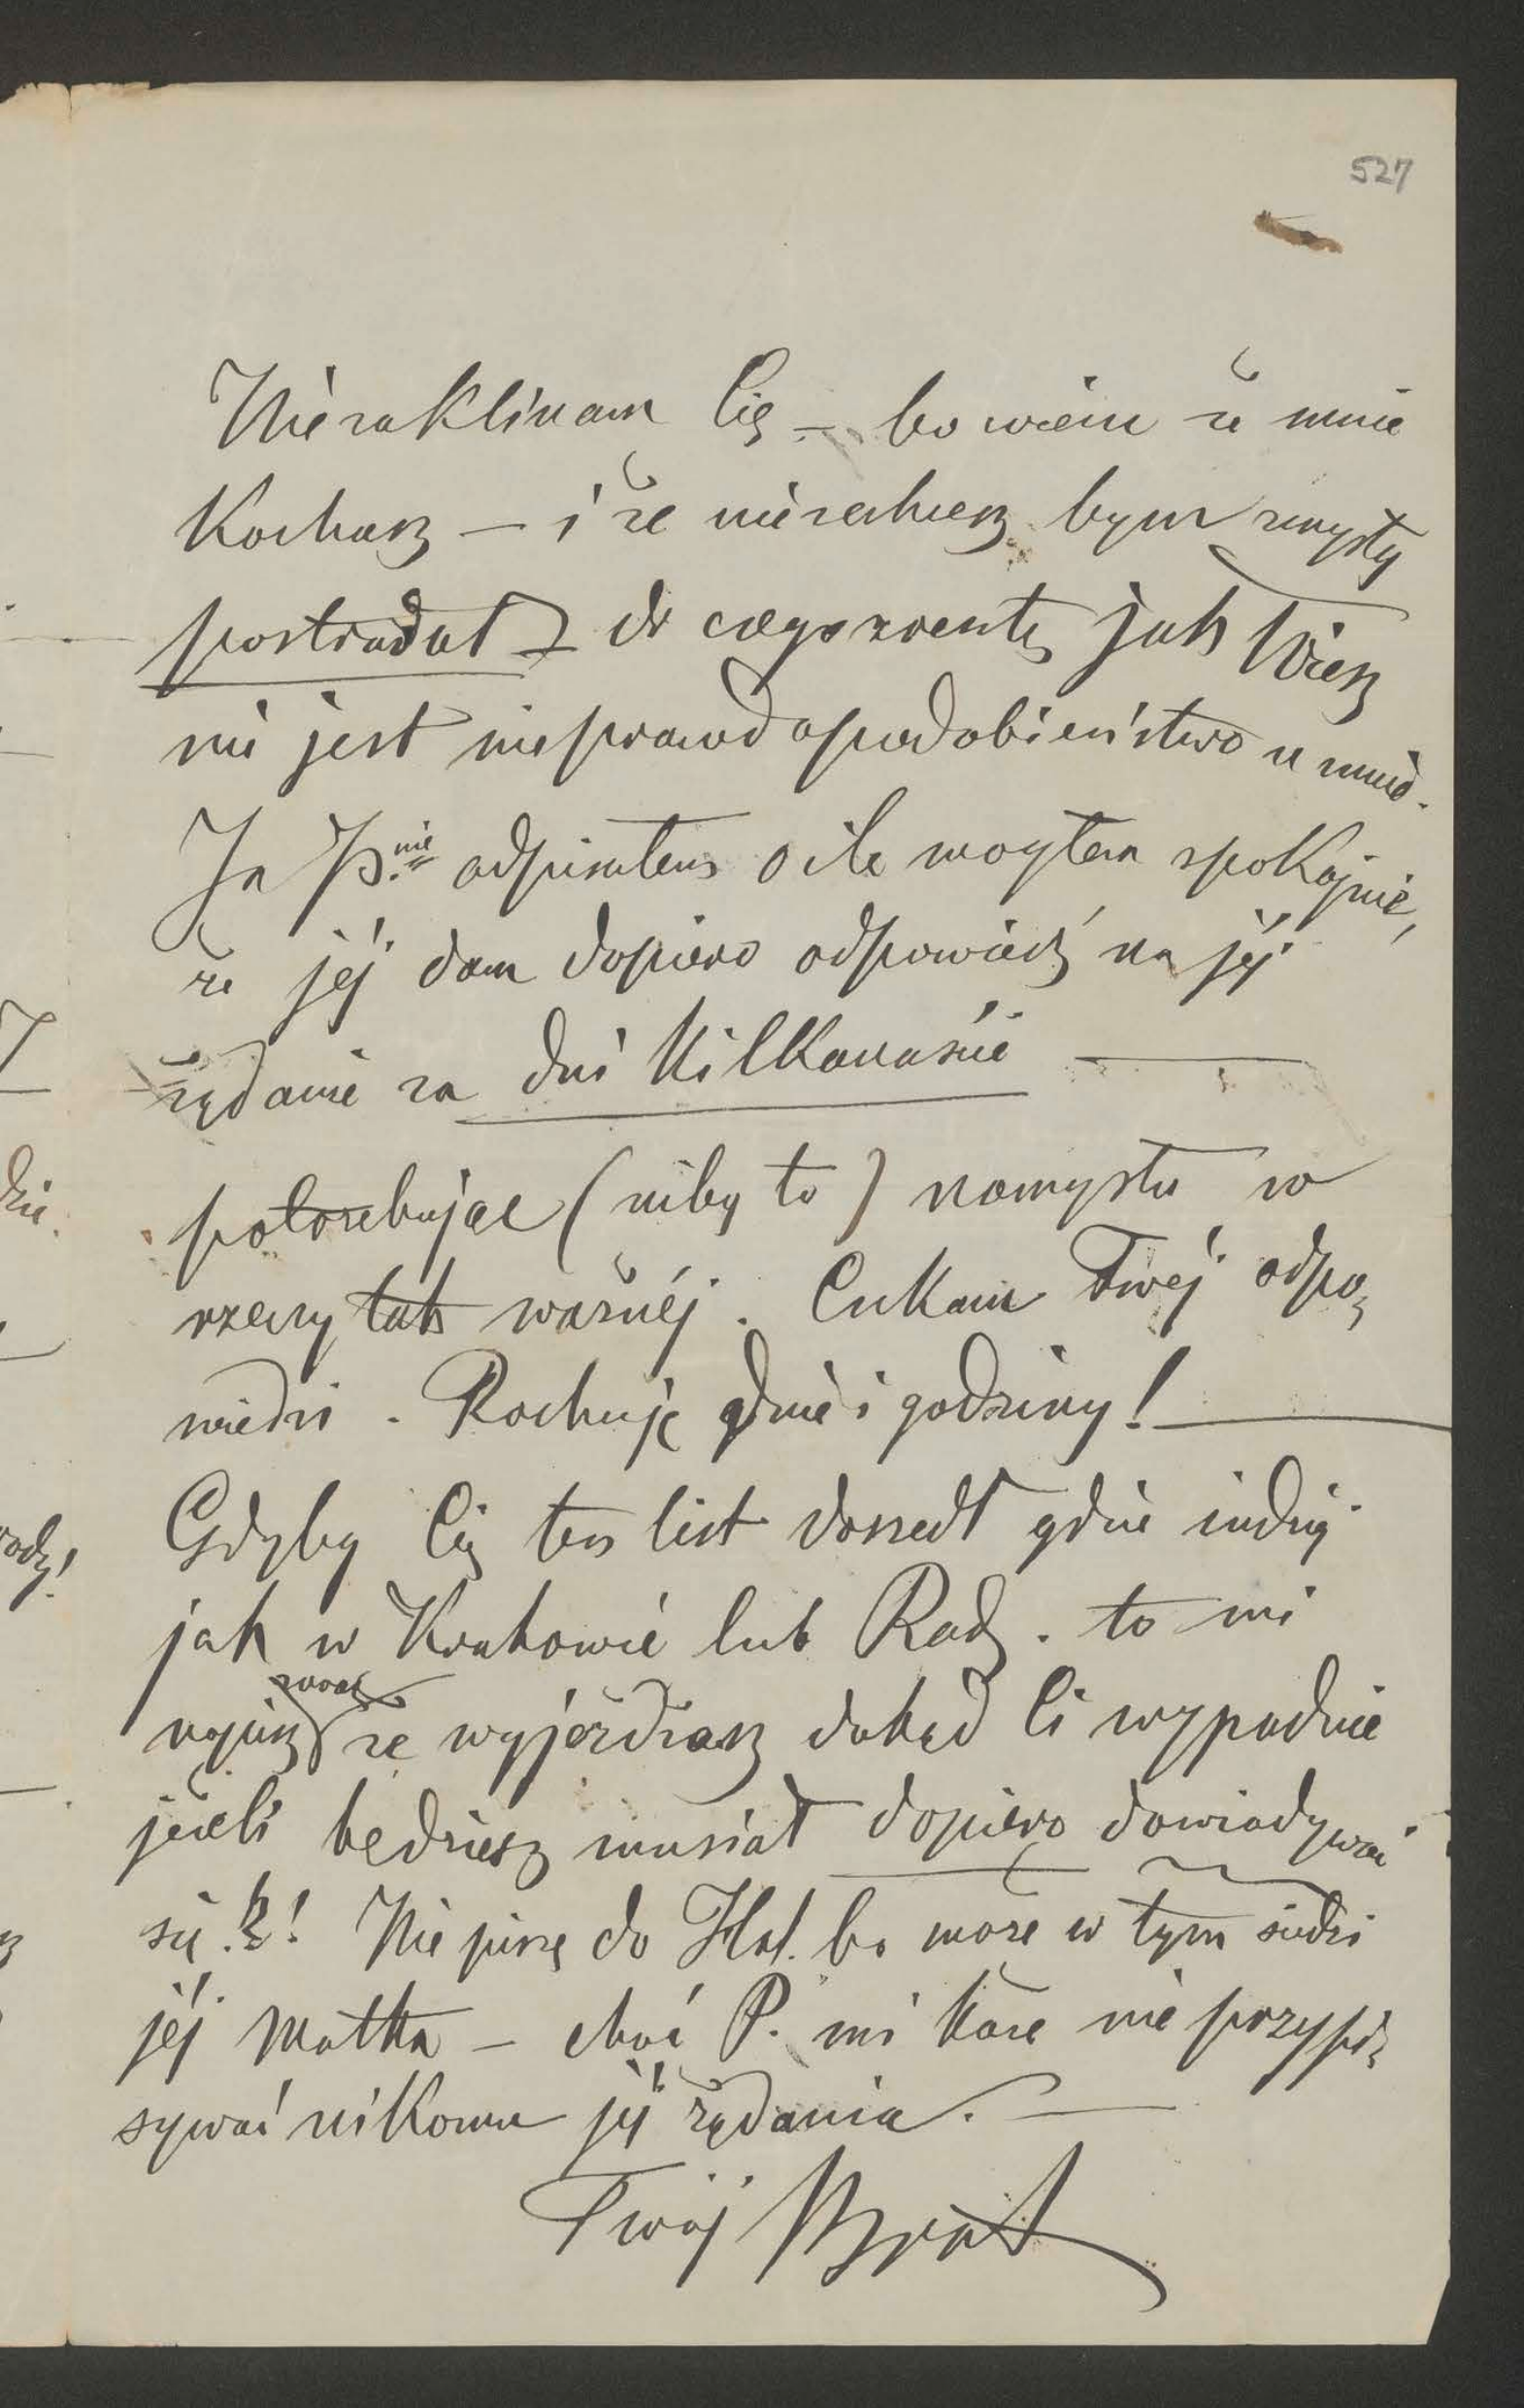 527
Nie zaklinam Cię – bo wiem że mnie
Kochasz – i że nie zechcesz bym zmysły
postradał – do czego zresztą jak Wiesz
nie jest nieprawdopodobieństwo u mnie.
Ja P.nie odpisałem o ile mogłem spokojnie,
że jéj dam dopiero odpowiedź na jéj
żądanie za dni kilkanaście —
potrzebując (niby to) namysłu w
rzeczy tak ważnéj. Czekam Twéj odpo=
wiedzi. Rachuję dnie i godziny! —
Gdyby Cię ten list doszedł gdzie indziéj
jak w Krakowie lub Radz. to mi
zaraz
napisz że wyjeżdżasz dokąd Ci wypadnie
jeżeli będziesz musiał dopiero dowiadywać
się.?! Nie piszę do Hal. bo może w tym siedzi
jéj Matka – choć P. mi każe nie przypi=
sywać nikomu jéj żądania. —
Twój Brat